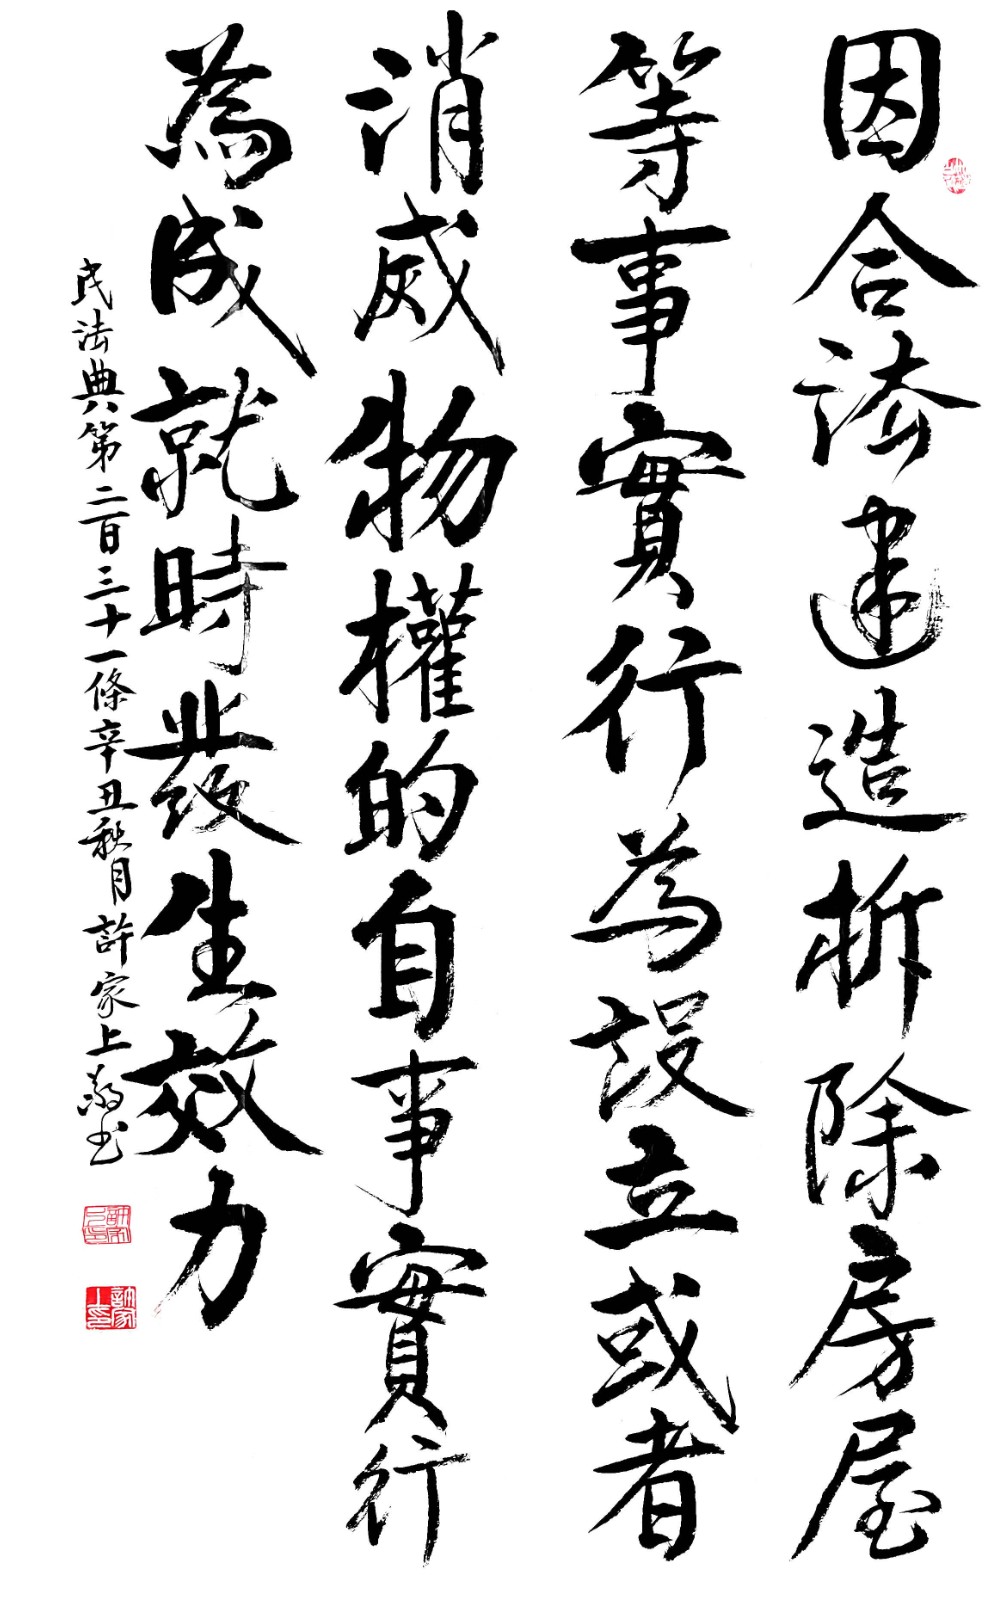 因合法建造拆除房屋
等事實行為設立或者
消烕物權的自事實行
為成就時發生效力
民法典第二百三十一條辛丑秋月許家上敬書